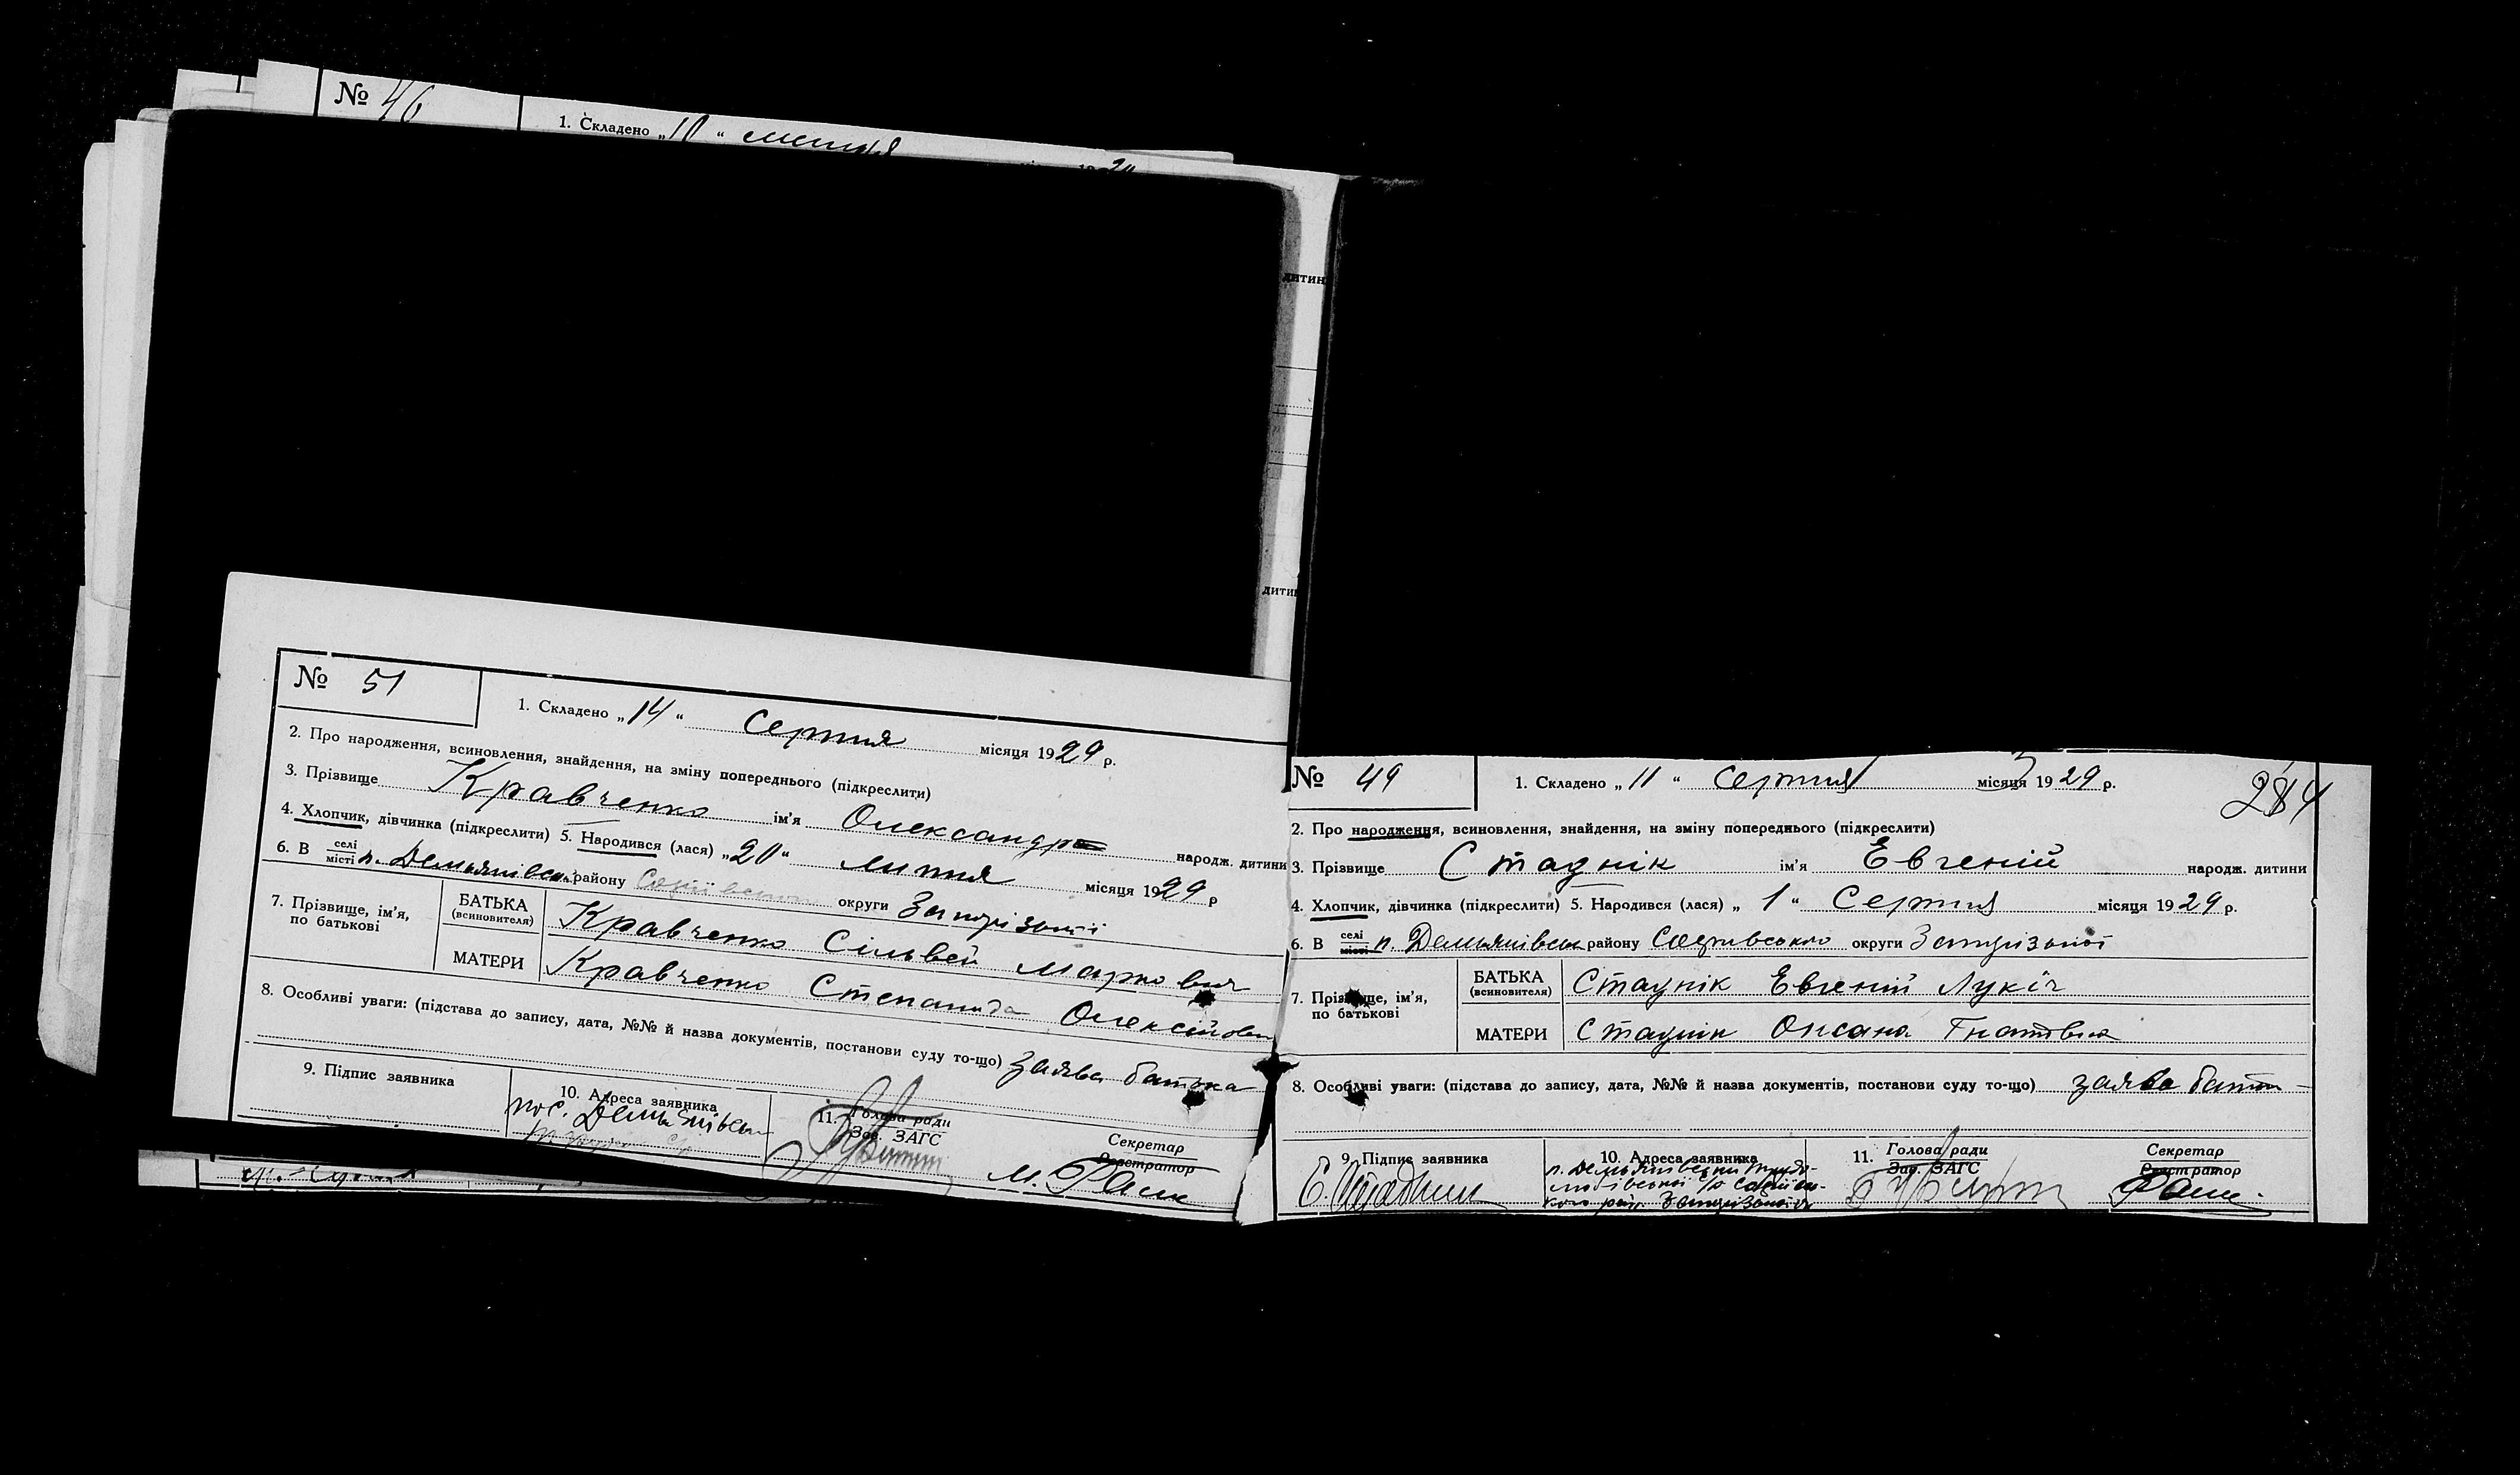 № 46
1. Складено „10“ липня
№ 51
1. Складено „14“ Серпня місяця 1929 р.
2. Про народження, всиновлення, знайдення, на зміну попереднього (підкреслити)
3. Прізвище Кравченко ім'я Олександр народж. дитини
4. Хлопчик, дівчинка (підкреслити) 5. Народився (лася) „20“ липня місяця 1929 р
6. В селі місті п. Демьянівськ. району Софіївського округи Запорізької
7. Прізвище, ім'я, по батькові
БАТЬКА (всиновителя) Кравченко Сільвей Маркович
МАТЕРИ Кравченко Степанида Олексійовн
8. Особливі уваги: (підстава до запису, дата, №№ й назва документів, постанови суду то-що) заява батька
9. Підпис заявника
10. Адреса заявника
пос. Демьянівськ
11. Голова ради
Зав. ЗАГС
Секретар
Реєстратор
дитин
дити
№ 49
1. Складено „11“ Серпня місяця 1929 р.
284
2. Про народження, всиновлення, знайдення, на зміну попереднього (підкреслити)
3. Прізвище Стаднік ім'я Евгеній народж. дитини
4. Хлопчик, дівчинка (підкреслити) 5. Народився (лася) „1“ Серпня місяця 1929 р.
6. В селі місті п. Демьянівськ району Софіівського округи Запорізької
7. Прізвище, ім'я, по батькові
БАТЬКА (всиновителя) Стаднік Евгеній Лукіч
МАТЕРИ Стаднік Оксана Гнатовна
8. Особливі уваги: (підстава до запису, дата, №№ й назва документів, постанови суду то-що) заява батьк
9. Підпис заявника
Е. Стадник
10. Адреса заявника
п. Демьянівськ Трудо-
любівської с/р Софіївсь-
кого рай. Запорізької
11. Голова ради
Зав. ЗАГС
Секретар
Реєстратор